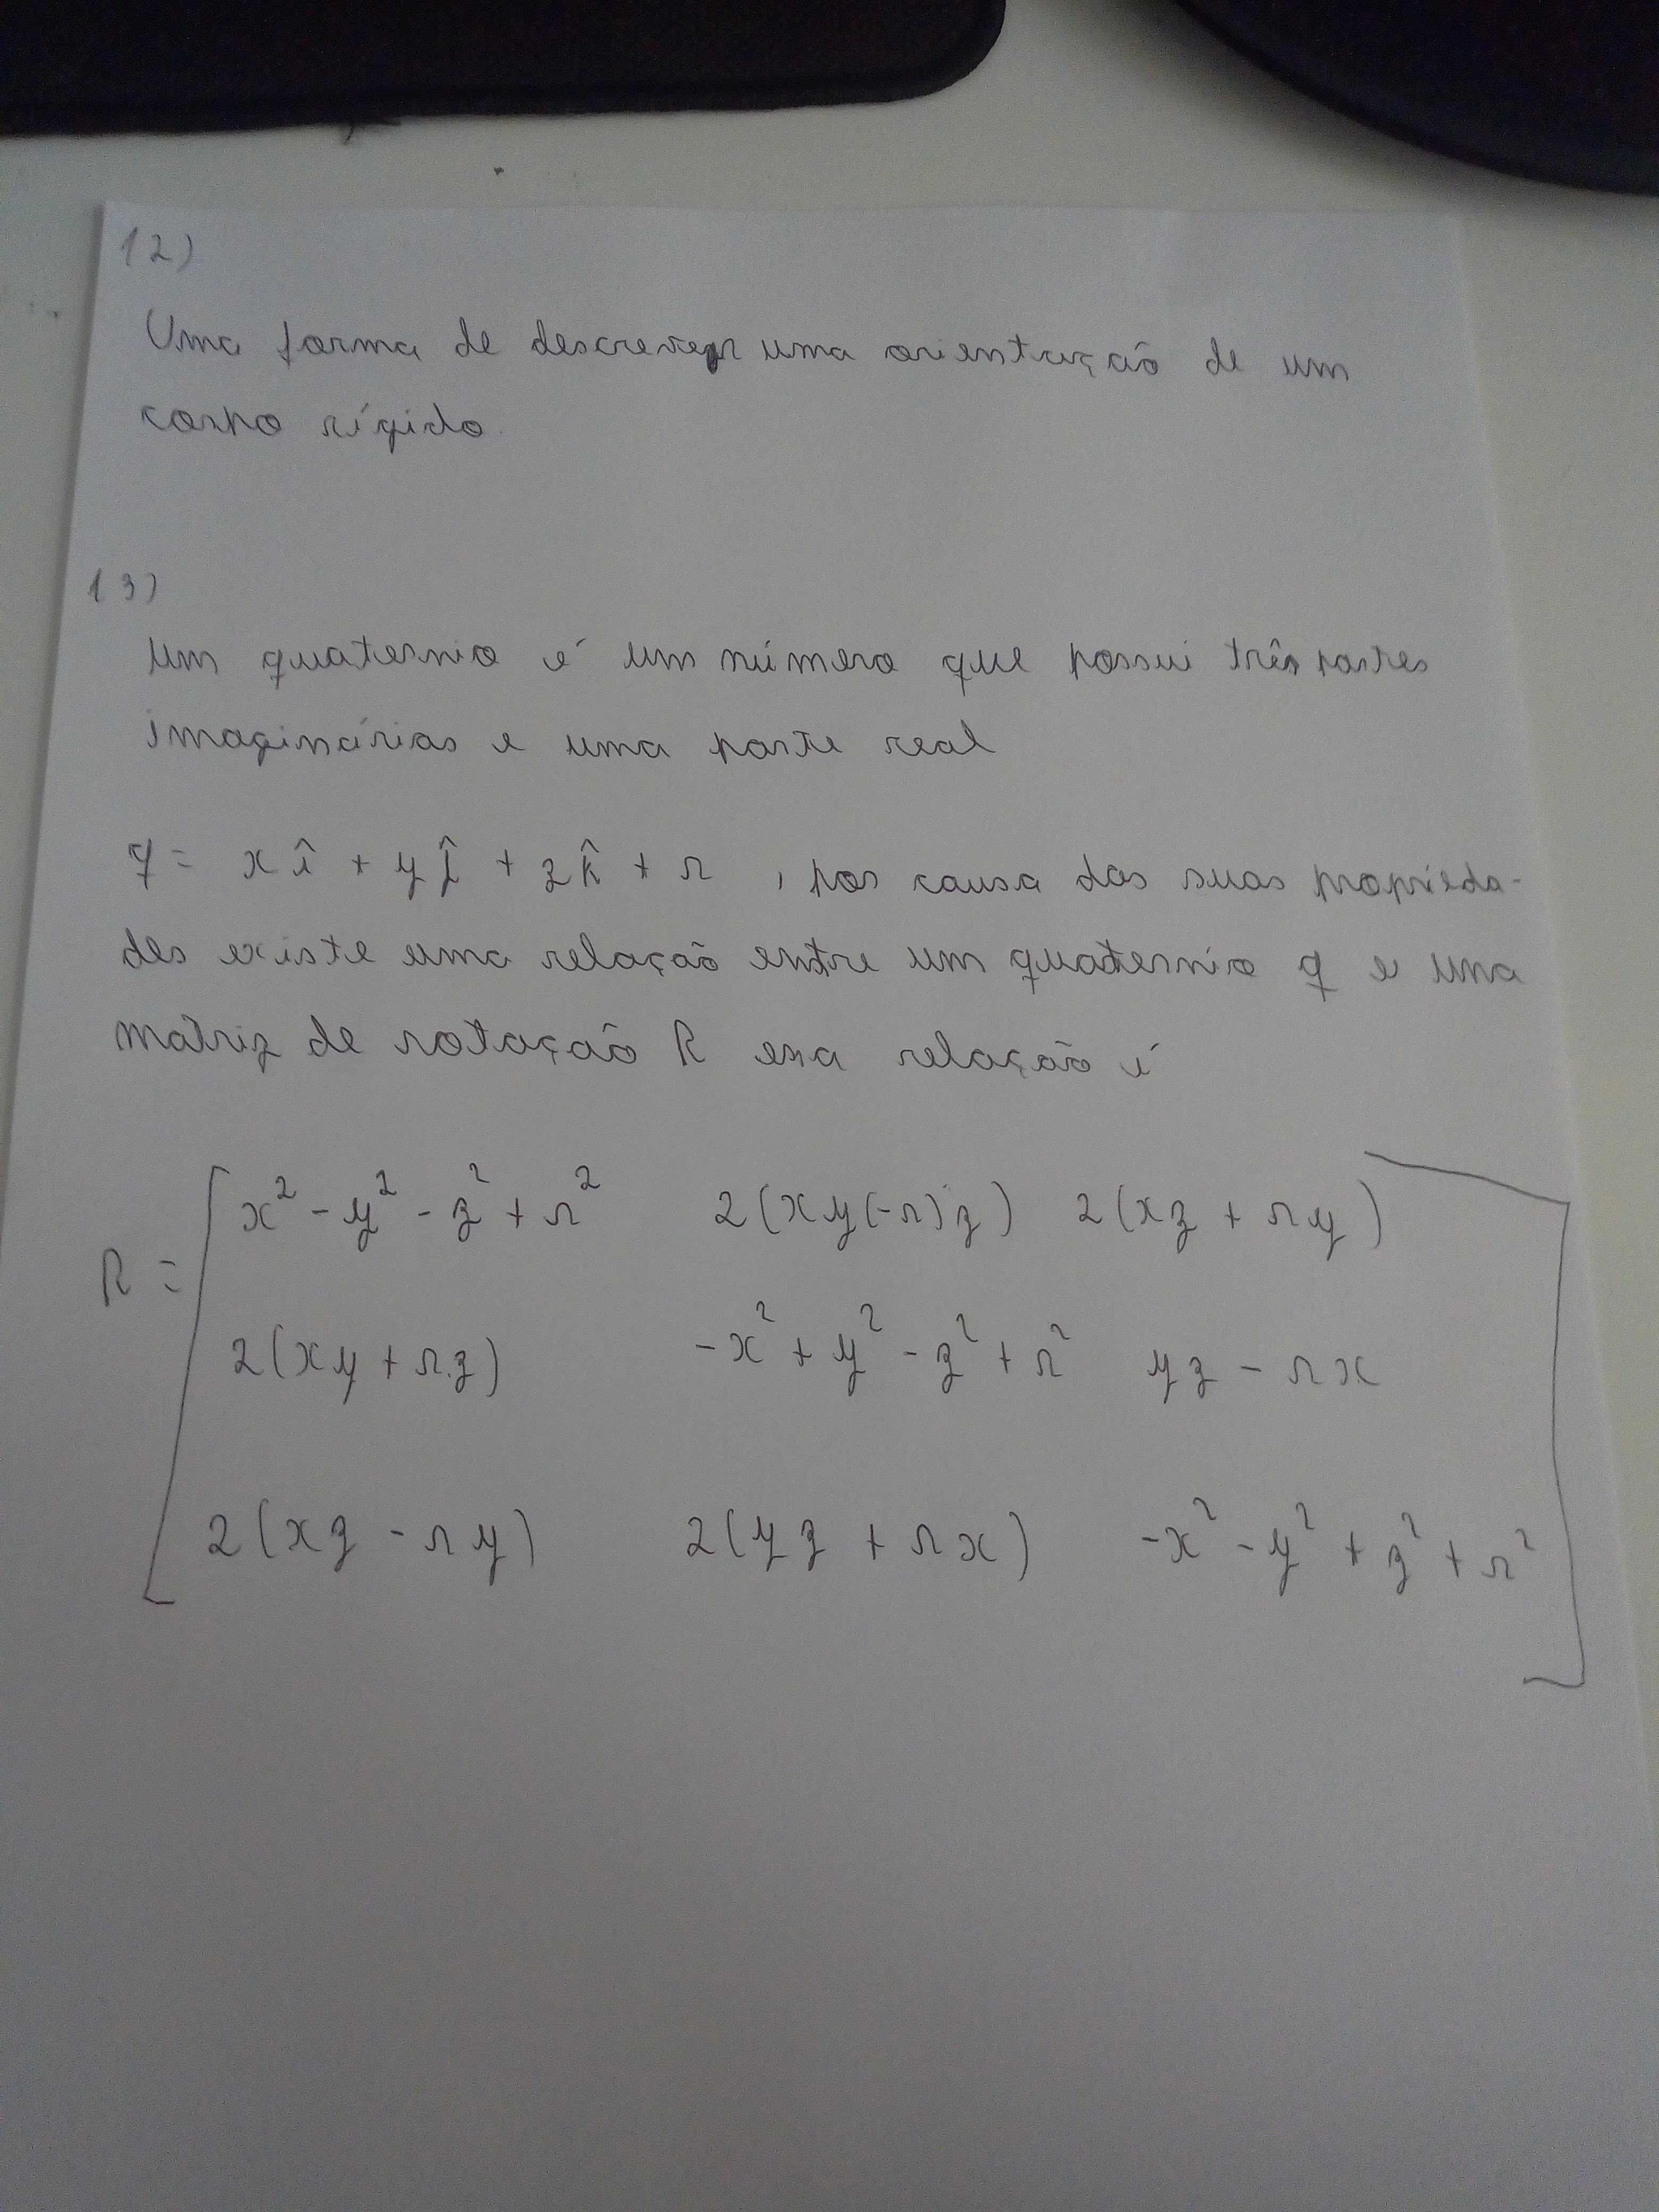 12)
Uma forma de descrever uma orientação de um
corpo rígido.
13)
Um quaternio é um número que possui três partes
imaginárias e uma parte real
q = x î + y ĵ + z k̂ + r , por causa das suas proprieda-
des existe uma relação entre um quaternio q e uma
matriz de rotação R essa relação é
R = [ x² - y² - z² + r² 2(xy(-r)z) 2(xz + ry)
2(xy + r.z) -x² + y² - z² + r² yz - rx
2(xz - ry) 2(yz + rx) -x² - y² + z² + r² ]